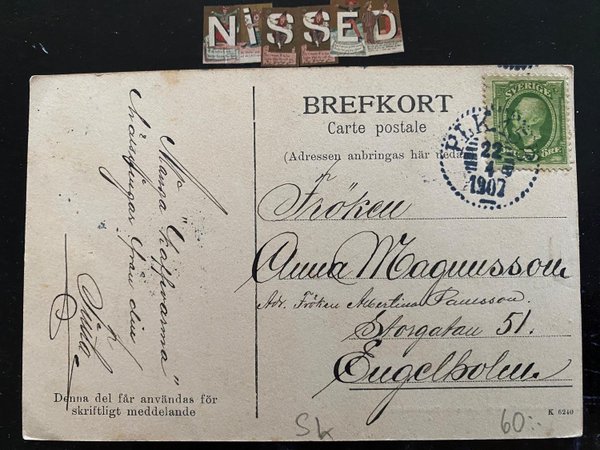 NiSSED
BREFKORT
Carte postale
(Adressen anbringas här neda
SVERIGE
PLK
22
4
1907
Fröken
Anna Magnusson
Adr. Fröken Albertina
Storgatan 51.
Engelholm
Många "kaffevarma"
hälsningar från din
Denna del får användas för
skriftligt meddelande
K 6240
Sk
60:-